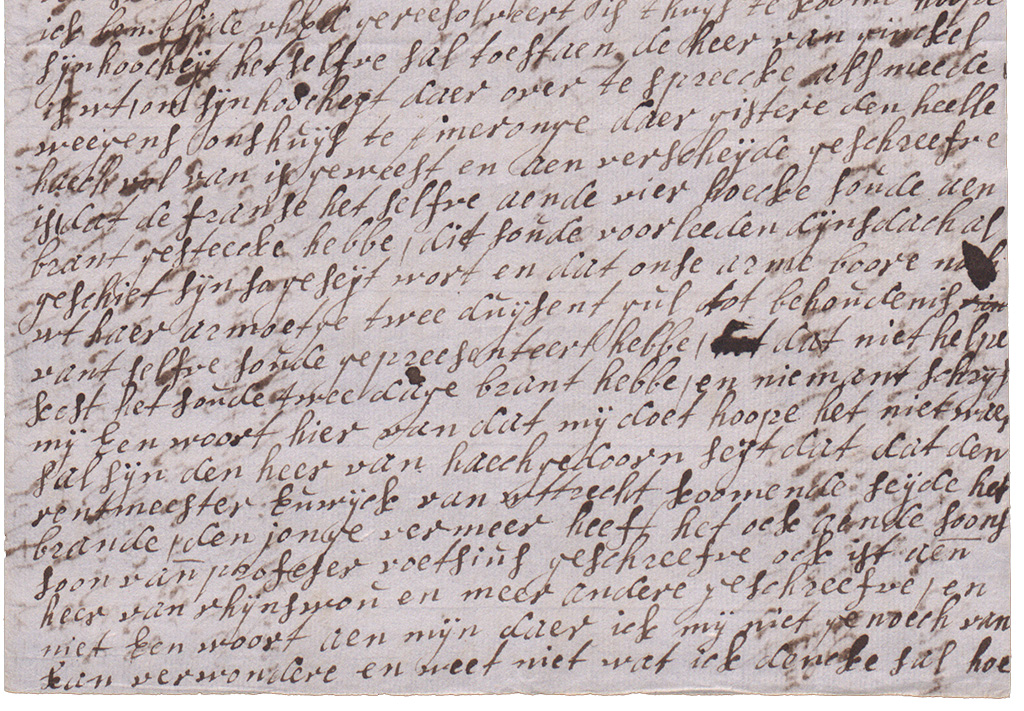 ick ben blijde uhEd gereesolveert is thuijs te koome hoope
sijn hoocheijt het selfve sal toestaen de heer van ginckel
is uijt, om sijn hoocheijt daer over te spreecke alsmeede
weegens ons huijs te ameronge daer gistere den heelle
haech vol van is geweest en aen verscheijde geschreefve
is, dat de franse het selfve aende vier hoecke soude aen
brant gesteecke hebbe, dit soude voorleeden dijnsdach al
geschiet sijn so geseijt wort en dat onse arme boore noch
ut haer armoetge twee duijsent gul tot behoudenis
vant selfve soude gepreesenteert hebbe, dat niet helpe
kost het soude twee dage brant hebbe, en niemant schrijf
mij Een woort hier van dat mij doet hoope het niet waer
sal sijn den heer van haechgedoorn seijt dat dat den
rentmeester van uttrecht koomende seijde het
brande, den jonge vermeer heeft het ock aende soons
soon van profeser voetsius geschreefve ock ist aen
heer van rhijnswou en meer andere geschreefve, en
niet Een woort aen mijn daer ick mij niet genoech van
kan verwondere en weet niet wat ick dencke sal hoe